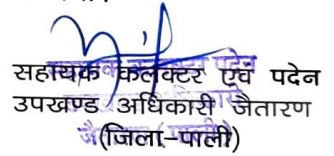 सहायक कलेक्टर एवं पदेन
उपखण्ड अधिकारी जैतारण
(जिला-पाली)